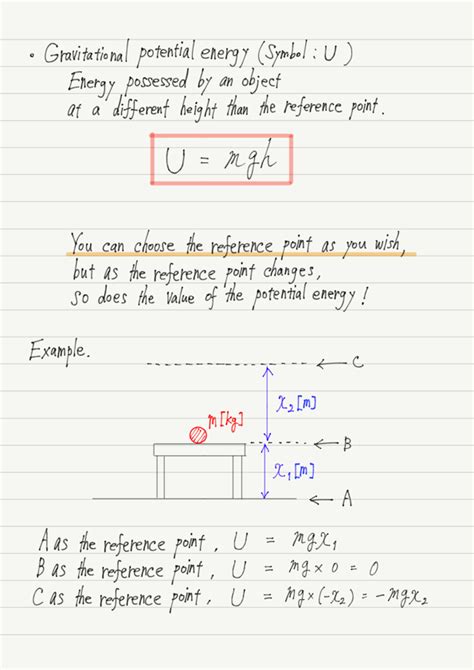 • Gravitational potential energy (Symbol : U)
Energy possessed by an object
at a different height than the reference point.
U = mgh
You can choose the reference point as you wish,
but as the reference point changes,
so does the value of the potential energy!
Example.
← C
x₂ [m]
m [kg]
← B
x₁ [m]
← A
A as the reference point, U = mgx₁
B as the reference point, U = mg × 0 = 0
C as the reference point, U = mg × (-x₂) = -mgx₂